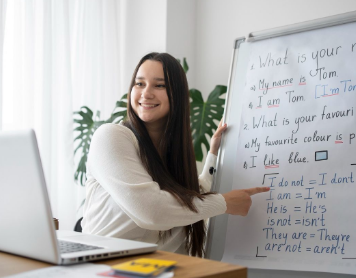 1. What is your n
a. My name is Tom
b. I am Tom. I'm Tom
2. What is your favouri
a. My favourite colour is p
b. I like blue.
I do not = I don't
I am = I'm
He is = He's
is not = isn't
They are = They're
are not = aren't